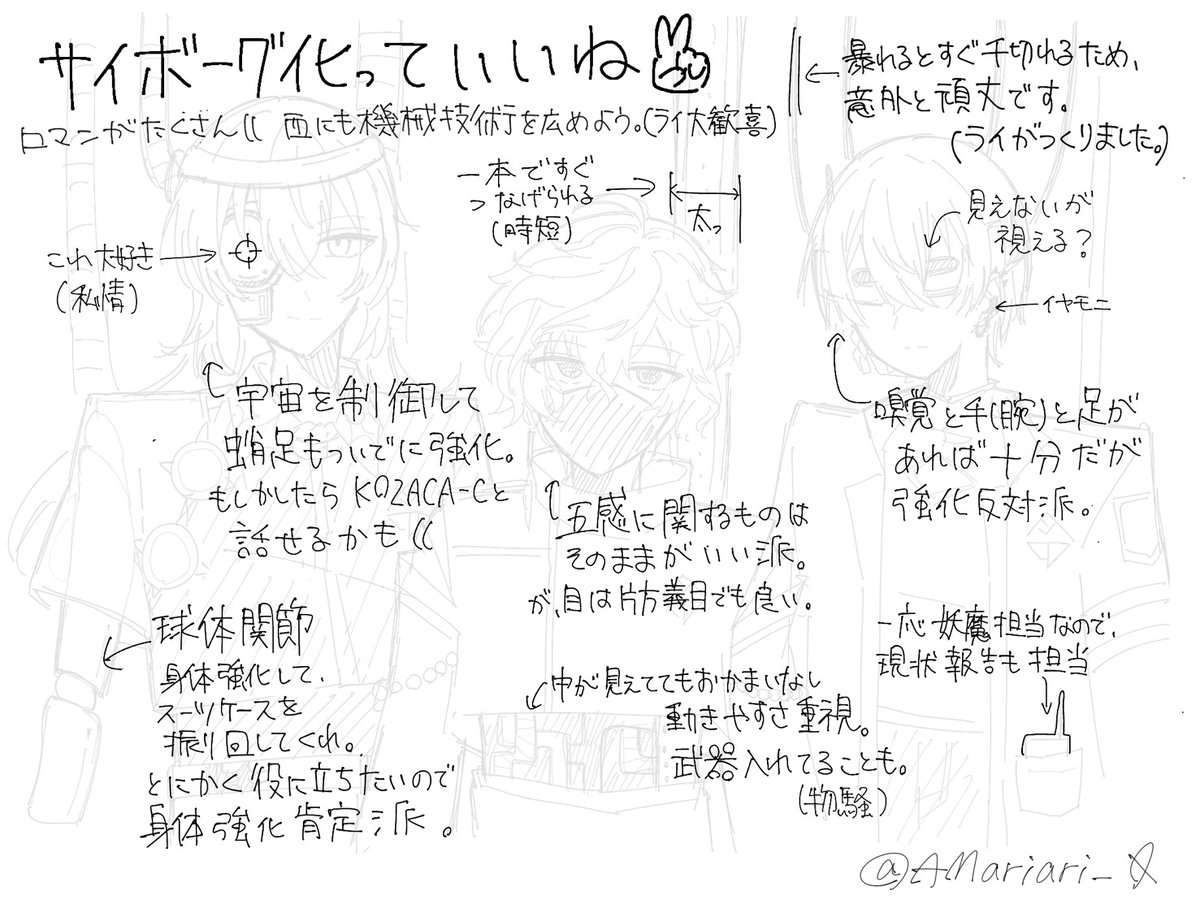 サイボーグ化っていいね
ロマンがたくさん(( 西にも機械技術を広めよう。(ライ大歓喜)
暴れるとすぐ千切れるため、
意外と頑丈です。
(ライがつくりました。)
一本ですぐ
つなげられる
(時短)
太っ
見えないが
視える?
これ大好き
(私情)
イヤモニ
宇宙を制御して
蛸足もついでに強化。
もしかしたらKOZACA-Cと
話せるかも((
嗅覚と手(腕)と足が
あれば十分だが
強化反対派。
五感に関するものは
そのままがいい派。
が、目は片方義目でも良い。
球体関節
身体強化して、
スーツケースを
振り回してくれ。
とにかく役に立ちたいので
身体強化肯定派。
中が見えててもおかまいなし
動きやすさ重視。
武器入れてることも。
(物騒)
一応妖魔担当なので、
現状報告も担当
@AMariari_